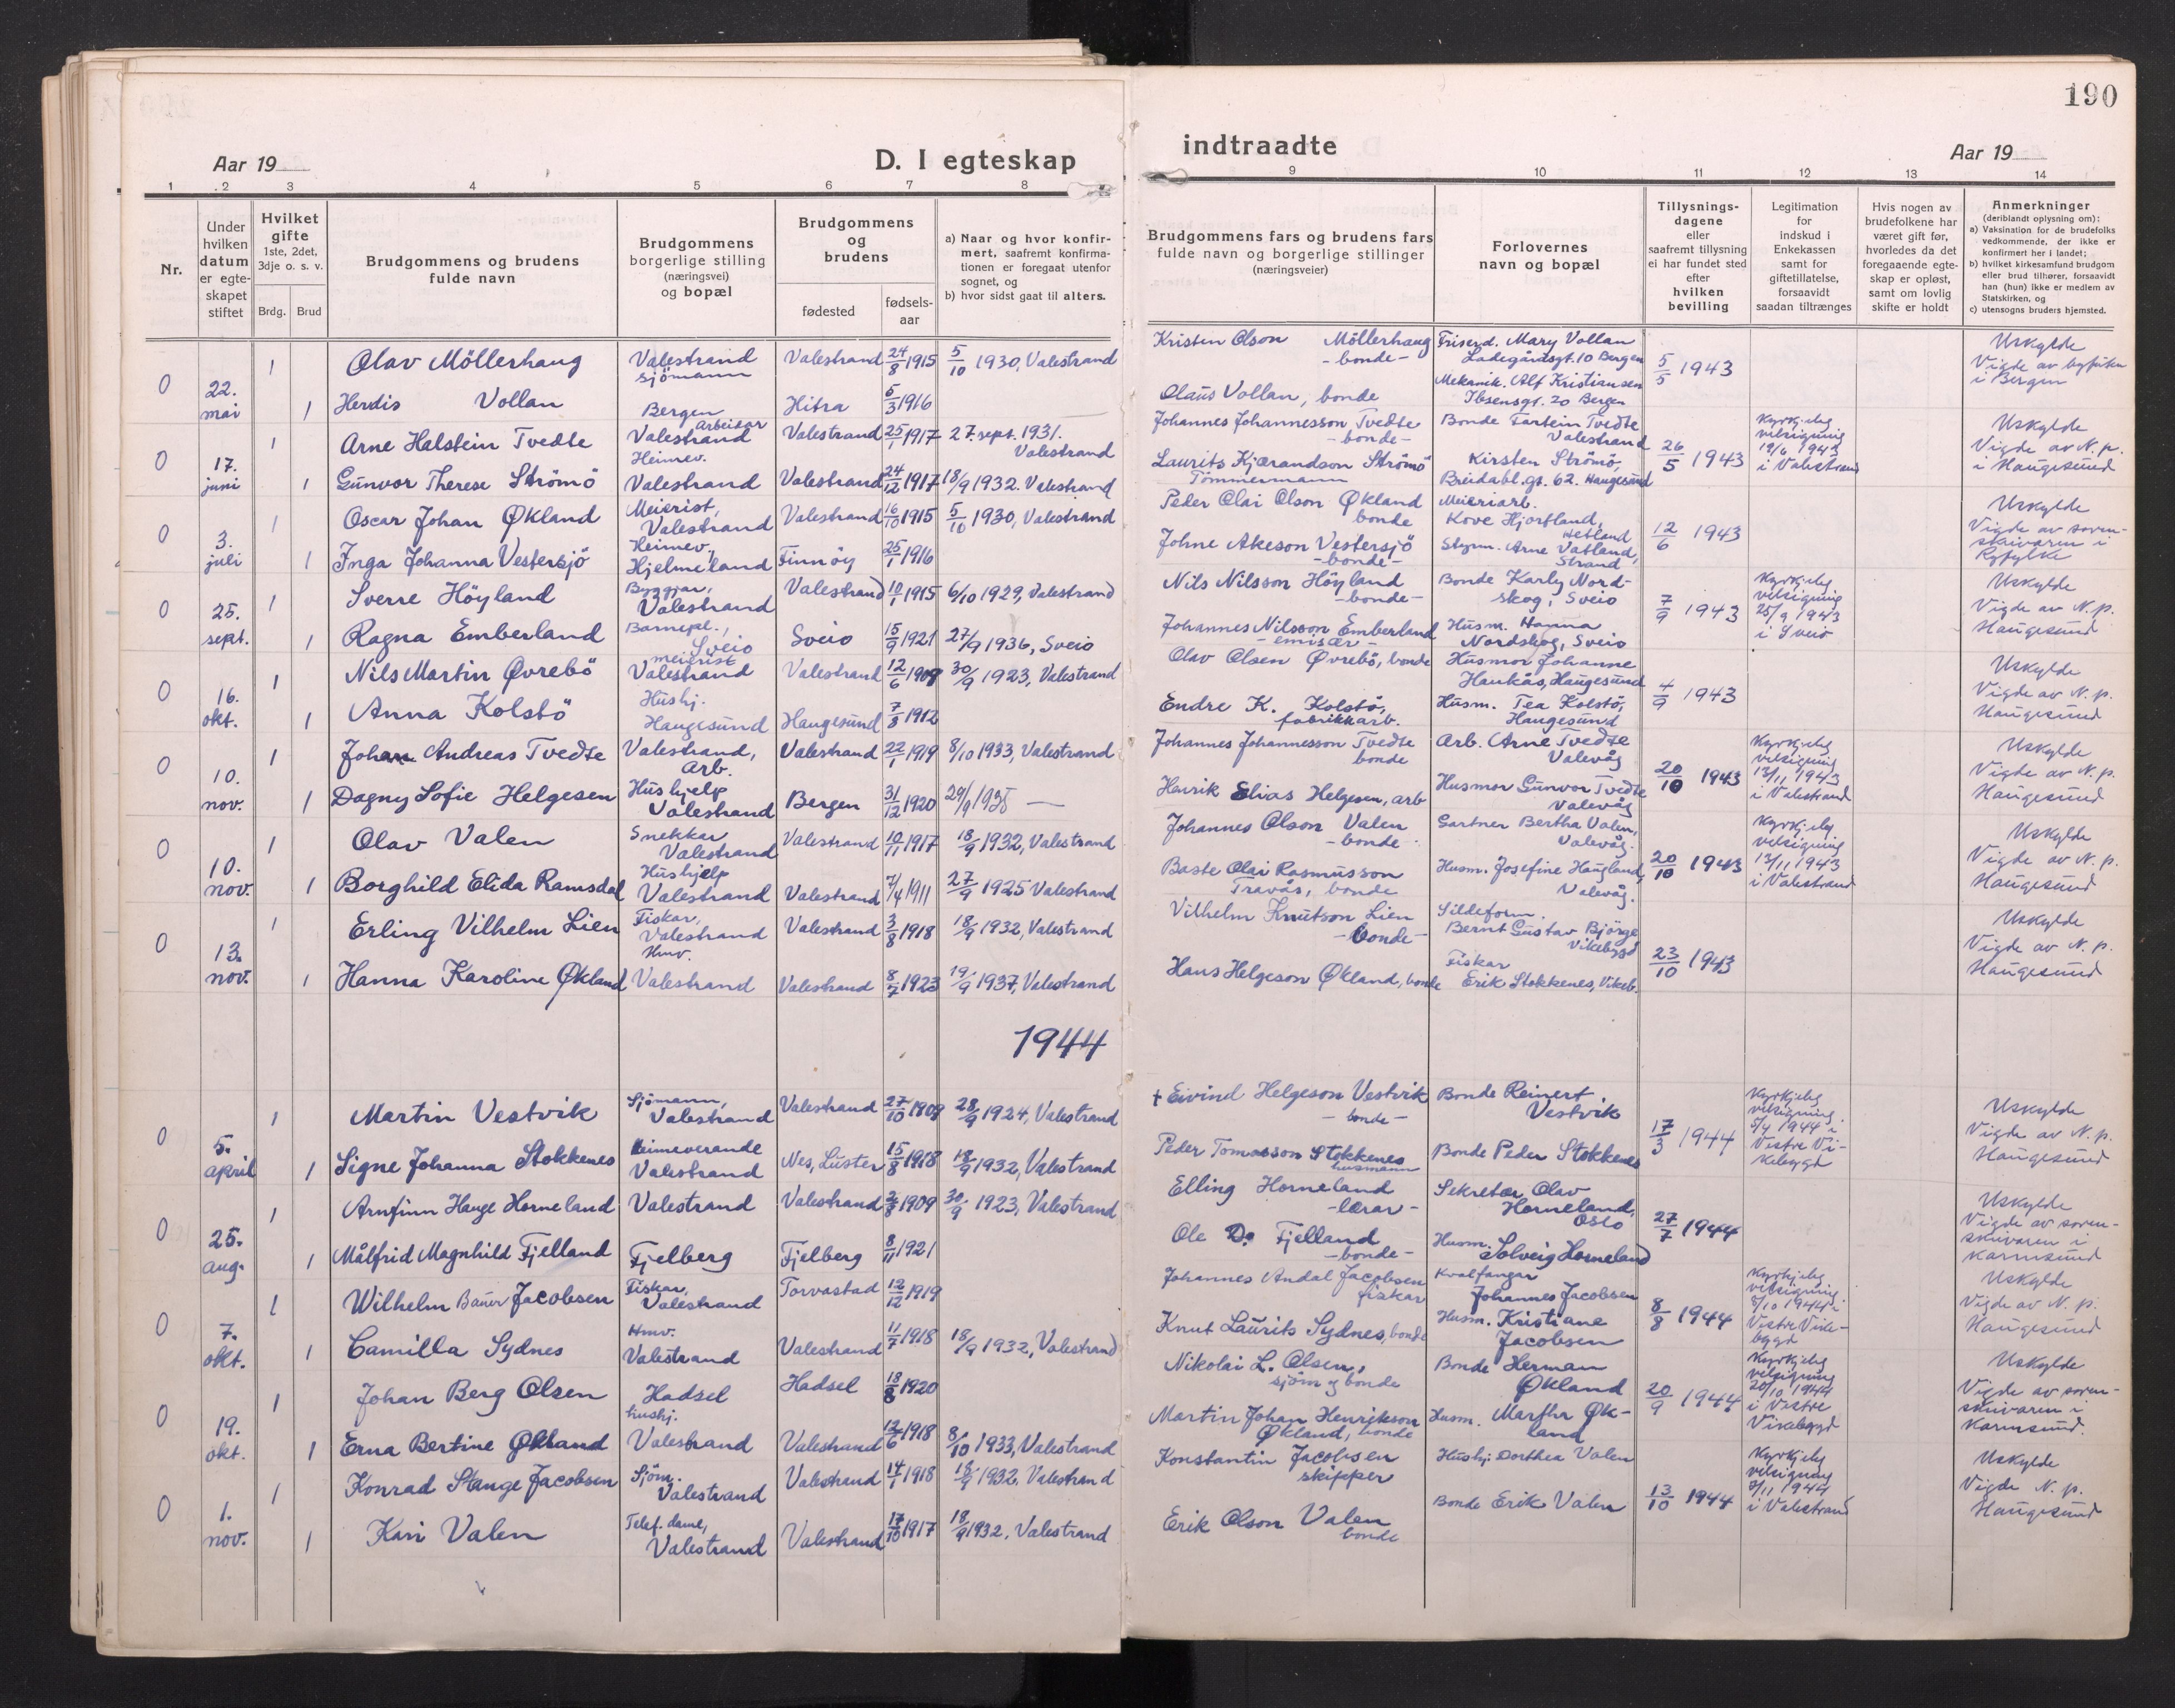 190
Aar 19
D. I egteskap
indtraadte
Aar 19
1 2 3 4 5 6 7 8 9 10 11 12 13 14
Nr.
Under
hvilken
datum
er egte-
skapet
stiftet
Hvilket
gifte
1ste, 2det,
3dje o. s. v.
Brdg. Brud
Brudgommens og brudens
fulde navn
Brudgommens
borgerlige stilling
(næringsvei)
og bopæl
Brudgommens
og
brudens
fødested
fødsels-
aar
a) Naar og hvor konfir-
mert, saafremt konfirma-
tionen er foregaat utenfor
sognet, og
b) hvor sidst gaat til alters.
Brudgommens fars og brudens fars
fulde navn og borgerlige stillinger
(næringsveier)
Forlovernes
navn og bopæl
Tillysnings-
dagene
eller
saafremt tillysning
ei har fundet sted
efter
hvilken
bevilling
Legitimation
for
indskud i
Enkekassen
samt for
giftetillatelse,
forsaavidt
saadan tiltrænges
Hvis nogen av
brudefolkene har
været gift før,
hvorledes da det
foregaaende egte-
skap er opløst,
samt om lovlig
skifte er holdt
Anmerkninger
(deriblandt oplysning om):
a) Vaksination for de brudefolks
vedkommende, der ikke er
konfirmert her i landet;
b) hvilket kirkesamfund brudgom
eller brud tilhører, forsaavidt
han (hun) ikke er medlem av
Statskirken, og
c) utensogns bruders hjemsted.
0
22.
mai
1 Olav Möllerhaug
Valestrand
sjömann
Valestrand 24/8 1915 5/10 1930, Valestrand
1 Herdis Vollan
Bergen
Hitra 5/3 1916
Kristen Olson Möllerhaug
- bonde -
Olaus Vollan, bonde
Friserd. Mary Vollan
Ladegårdsgt. 10 Bergen
Mekanik. Alf Kristiansen
Ibsensgt. 20 Bergen
5/5 1943
Uskylde
Vigde av byfuten
i Bergen
0
17.
juni
1 Arne Halstein Tvedte
arbeidar
Valestrand
Valestrand 25/1 1917 27. sept. 1931.
Valestrand
1 Gunvor Therese Strömö
Heimev.
Valestrand
Valestrand 24/12 1917 18/9 1932. Valestrand
Johannes Johannesson Tvedte
- bonde -
Laurits Kjærandson Strömö
Tömmermann
Bonde Tartein Tvedte
Valestrand
Kirsten Strömö,
Breidabl.gt. 62. Haugesund
26/5 1943
Kyrkjeleg
velsigning
19/6 1943
i Valestrand
Uskylde
Vigde av N. p.
i Haugesund
0
3.
juli
1 Oscar Johan Økland
Meierist,
Valestrand
Valestrand 16/10 1915 5/10 1930, Valestrand
1 Inga Johanna Vestersjö
Heimev.,
Hjelmeland
Finnöy 25/1 1916
Peder Olai Olson Økland
bonde
Johne Akeson Vestersjö
- bonde -
Meieriarb.
Kove Hjortland,
Hetland
Styrm. Arne Vatland,
Strand
12/6 1943
Uskylde
Vigde av soren-
skrivaren i
Ryfylke
0
25.
sept.
1 Sverre Höyland
Byggjar,
Valestrand
Valestrand 10/1 1915 6/10 1929, Valestrand
1 Ragna Emberland
Barnepl.,
Sveio
Sveio 15/9 1921 27/9 1936, Sveio
Nils Nilsson Höyland
- bonde -
Johannes Nilsson Emberland
- emisær -
Bonde Karly Nord-
skog, Sveio
Husm. Hanna
Nordskog, Sveio
7/9 1943
Kyrkjeleg
velsigning
25/9 1943
i Sveio
Uskylde
Vigde av N. p.
Haugesund
0
16.
okt.
1 Nils Martin Øvrebö
meierist
Valestrand
Valestrand 12/6 1909 30/9 1923, Valestrand
1 Anna Kolstö
Hushj.
Haugesund
Haugesund 7/8 1912
Olav Olsen Øvrebö, bonde
Endre K. Kolstö,
fabrikkarb.
Husmor Johanne
Haukås, Haugesund
Husm. Tea Kolstö,
Haugesund
4/9 1943
Uskylde
Vigde av N. p.
Haugesund
0
10.
nov.
1 Johan Andreas Tvedte
Valestrand,
arb.
Valestrand 22/1 1919 8/10 1933, Valestrand
1 Dagny Sofie Helgesen
Hushjelp
Valestrand
Bergen 31/12 1920 29/9 1935 —
Johannes Johannesson Tvedte
bonde
Henrik Elias Helgesen, arb
Arb. Arne Tvedte
Valevåg
Husmor Gunvor Tvedte
Valevåg
20/10 1943
Kyrkjeleg
velsigning
13/11 1943
i Valestrand
Uskylde
Vigde av N. p.
Haugesund
0
10.
nov.
1 Olav Valen
Snekkar
Valestrand
Valestrand 10/11 1917 18/9 1932, Valestrand
1 Borghild Elida Ramsdal
Hushjelp
Valestrand
Valestrand 7/4 1911 27/9 1925 Valestrand
Johannes Olson Valen
- bonde -
Baste Olai Rasmusson
Travås, bonde
Gartner Bertha Valen,
Valevåg.
Husm. Josefine Haugland,
Valevåg.
20/10 1943
Kyrkjeleg
velsigning
13/11 1943
i Valestrand
Uskylde
Vigde av N. p.
Haugesund
0
13.
nov.
1 Erling Vilhelm Lien
Fiskar,
Valestrand
Valestrand 3/8 1918 18/9 1932, Valestrand
1 Hanna Karoline Økland
Hmv.
Valestrand
Valestrand 8/7 1923 19/9 1937, Valestrand
Vilhelm Knutson Lien
- bonde -
Hans Helgeson Økland, bonde
Sildeform.
Bernt Gustav Björge
Vikebygd
Fiskar
Erik Stokkenes, Vikeb.
23/10 1943
Uskylde
Vigde av N. p.
Haugesund
1944
0
5.
april
1 Martin Vestvik
Sjömann,
Valestrand
Valestrand 27/10 1909 28/9 1924, Valestrand
1 Signe Johanna Stokkenes
Heimeverande
Valestrand
Nes, Luster 15/8 1918 18/9 1932, Valestrand
† Eivind Helgeson Vestvik
- bonde -
Peder Tomasson Stokkenes
husmann
Bonde Reinert
Vestvik
Bonde Peder Stokkenes
17/3 1944
Kyrkjeleg
velsigning
5/4 1944 i
Vestre Vi-
kebygd
Uskylde
Vigde av N. p.
Haugesund
0
25.
aug.
1 Arnfinn Hauge Horneland
Valestrand
Valestrand 2/8 1909 30/9 1923, Valestrand
1 Målfrid Magnhild Fjelland
Fjelberg
Fjelberg 8/11 1921
Elling Horneland
- lærar -
Ole D. Fjelland
- bonde -
Sekretær Olav
Horneland,
Oslo
Husm.
Solveig Horneland
27/7 1944
Uskylde
Vigde av soren-
skrivaren i
Karmsund
0
7.
okt.
1 Wilhelm Bauer Jacobsen
Fiskar,
Valestrand
Torvastad 12/12 1919
1 Camilla Sydnes
Hmv.
Valestrand
Valestrand 11/7 1918 18/9 1932, Valestrand
Johannes Andal Jacobsen
fiskar
Knut Laurits Sydnes, bonde
Kvalfangar
Johannes Jacobsen
Husm. Kristiane
Jacobsen
8/8 1944
Kyrkjeleg
velsigning
8/10 1944 i
Vestre Vike-
bygd
Uskylde
Vigde av N. p.
Haugesund
0
19.
okt.
1 Johan Berg Olsen
Hadsel
Hadsel 18/8 1920
1 Erna Bertine Økland
hushj.
Valestrand
Valestrand 12/6 1918 8/10 1933, Valestrand
Nikolai L. Olsen,
sjöm og bonde
Martin Johan Henrikson
Økland, bonde
Bonde Herman
Økland
Husm. Marthe Øk-
land
20/9 1944
Kyrkjeleg
velsigning
20/10 1944
i Vestre
Vikebygd
Uskylde
Vigde av soren-
skrivaren i
Karmsund.
0
1.
nov.
1 Konrad Stange Jacobsen
Sjöm.
Valestrand
Valestrand 14/1 1918 18/9 1932, Valestrand
1 Kari Valen
Telef. dame,
Valestrand
Valestrand 17/10 1917 18/9 1932, Valestrand
Konstantin Jacobsen
skipper
Erik Olson Valen
bonde
Hushj. Dorthea Valen
Bonde Erik Valen
13/10 1944
Kyrkjeleg
velsigning
2/11 1944
i Valestrand
Uskylde
Vigde N. p.
Haugesund